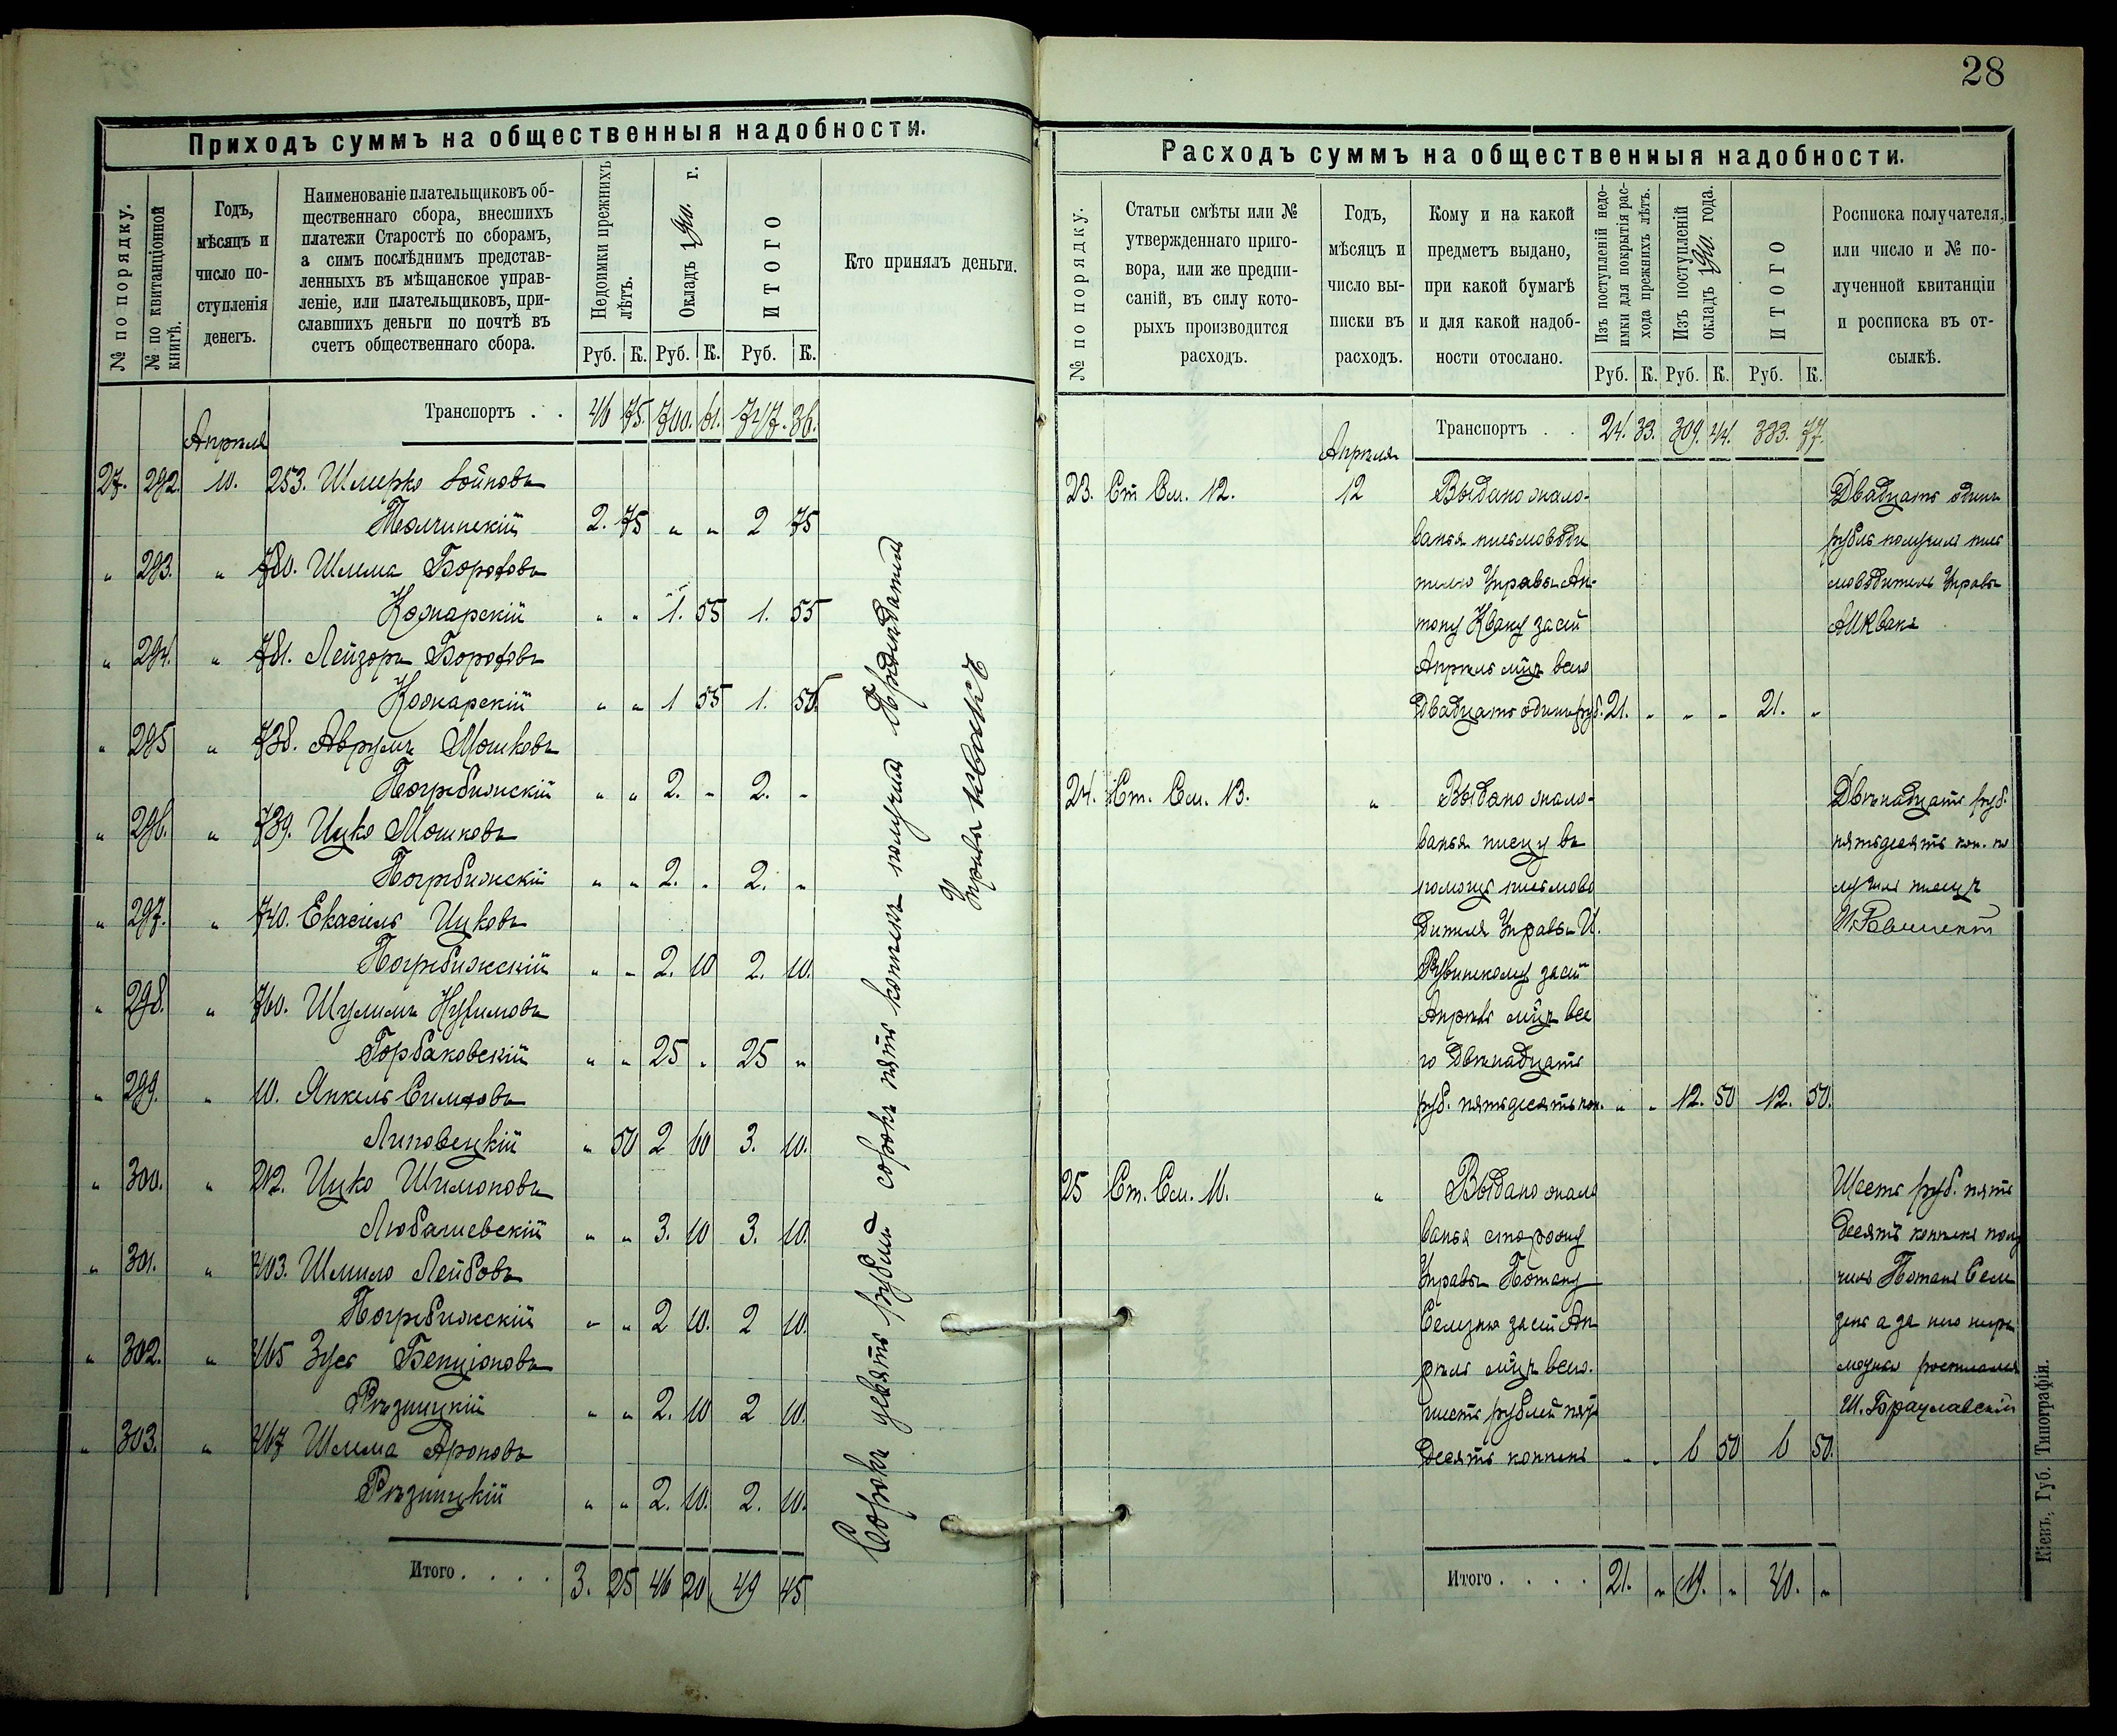 28
Приходъ суммъ на общественныя надобности.
№ по порядку.
№ по квитанціонной книгѣ.
Годъ,
мѣсяцъ и
число по-
ступленія
денегъ.
Наименованіе плательщиковъ об-
щественнаго сбора, внесшихъ
платежи Старостѣ по сборамъ,
а симъ послѣднимъ представ-
ленныхъ въ мѣщанское управ-
леніе, или плательщиковъ, при-
славшихъ деньги по почтѣ въ
счетъ общественнаго сбора.
Недоимки прежнихъ лѣтъ.
Окладъ 1 г.
ИТОГО
Кто принялъ деньги.
Руб. К. Руб. К. Руб. К.
Транспортъ . . 46 75. 700. 61. 747. 36.
Апрѣля
27. 292. 10. 253. Шмерко
2. 75 „ „ 2 75
„ 293. „ 780. Шлема Боруховъ
Коднарскій „ „ 1. 55 1. 55
„ 294. „ 781. Лейзоръ Боруховъ
Коднарскій „ „ 1 55 1. 55
„ 295 „ 738. Аврумъ Мошковъ
Погребижскій „ „ 2. „ 2. „
„ 296. „ 739. Ицко Мошковъ
Погребижскій „ „ 2. „ 2. „
„ 297. „ 740. Екасіель Ицковъ
Погребижскій „ „ 2. 10 2. 10.
„ 298. „ 760. Шулимъ Нухимовъ
Горбаковскій „ „ 25 „ 25 „
„ 299. „ 10. Янкель Симховъ
Липовецкій „ 50 2 60 3. 10.
„ 300. „ 212. Ицко Шимоновъ
Любашевскій „ „ 3. 10 3. 10.
„ 301. „ 403. Шмило Лейбовъ
Погребижскій „ „ 2 10. 2 10.
„ 302. „ 465 Зусь Бенціоновъ
Рѣзницкій „ „ 2. 10 2 10.
„ 303. „ 467 Шлема Ароновъ
Рѣзницкій „ „ 2. 10. 2. 10.
Итого . . . . 3. 25 46 20 49 45
Сорокъ девять рублей сорокъ пять копѣекъ получилъ Предсѣдатель
Управы
Расходъ суммъ на общественныя надобности.
№ по порядку.
Статьи смѣты или №
утвержденнаго приго-
вора, или же предпи-
саній, въ силу кото-
рыхъ производится
расходъ.
Годъ,
мѣсяцъ и
число вы-
писки въ
расходъ.
Кому и на какой
предметъ выдано,
при какой бумагѣ
и для какой надоб-
ности отослано.
Изъ поступленій недо-
имки для покрытія рас-
хода прежнихъ лѣтъ.
Изъ поступленій
окладъ 1 года.
ИТОГО
Росписка получателя,
или число и № по-
лученной квитанціи
и росписка въ от-
сылкѣ.
Руб. К. Руб. К. Руб. К.
Транспортъ . . 24. 33. 309. 44. 333. 77.
Апрѣля
23. Ст См. 12. 12 Выдано жало-
ванья письмоводи
телю Управы Ан-
тону Кваку за сей
Апрель мцъ всего
Двадцать одинъ руб. 21. „ „ „ 21. „
Двадцать одинъ
рубль получилъ пись
моводитель Управы
24. Ст. См. 13. „ Выдано жало-
ванья писцу въ
помощь письмово
дителя Управы И.
за сей
Апрель мцъ все
го Двѣнадцать
руб. пятьдесятъ коп. „ „ 12. 50 12. 50.
Двѣнадцать руб.
пятьдесятъ коп. по
лучилъ писецъ
25 Ст. См. 11. „ Выдано жало
ванья сторожу
Управы Потапу
за сей Ап-
рель мцъ всего.
шесть рублей пять
десять копѣекъ „ „ 6 50 6 50.
Шесть руб. пять
десять копѣекъ полу
чилъ Потапъ
а за него негра
мотнаго росписался
Ш. Брацлавскій
Итого . . . . 21. „ 19. „ 40. „
Кіевъ, Губ. Типографія.